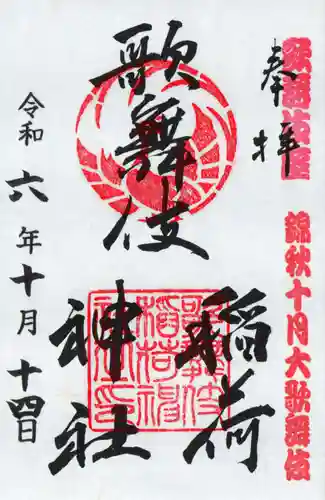 歌舞伎座
錦秋十月大歌舞伎
奉拝
歌舞伎
稲荷
神社
令和六年十月十四日